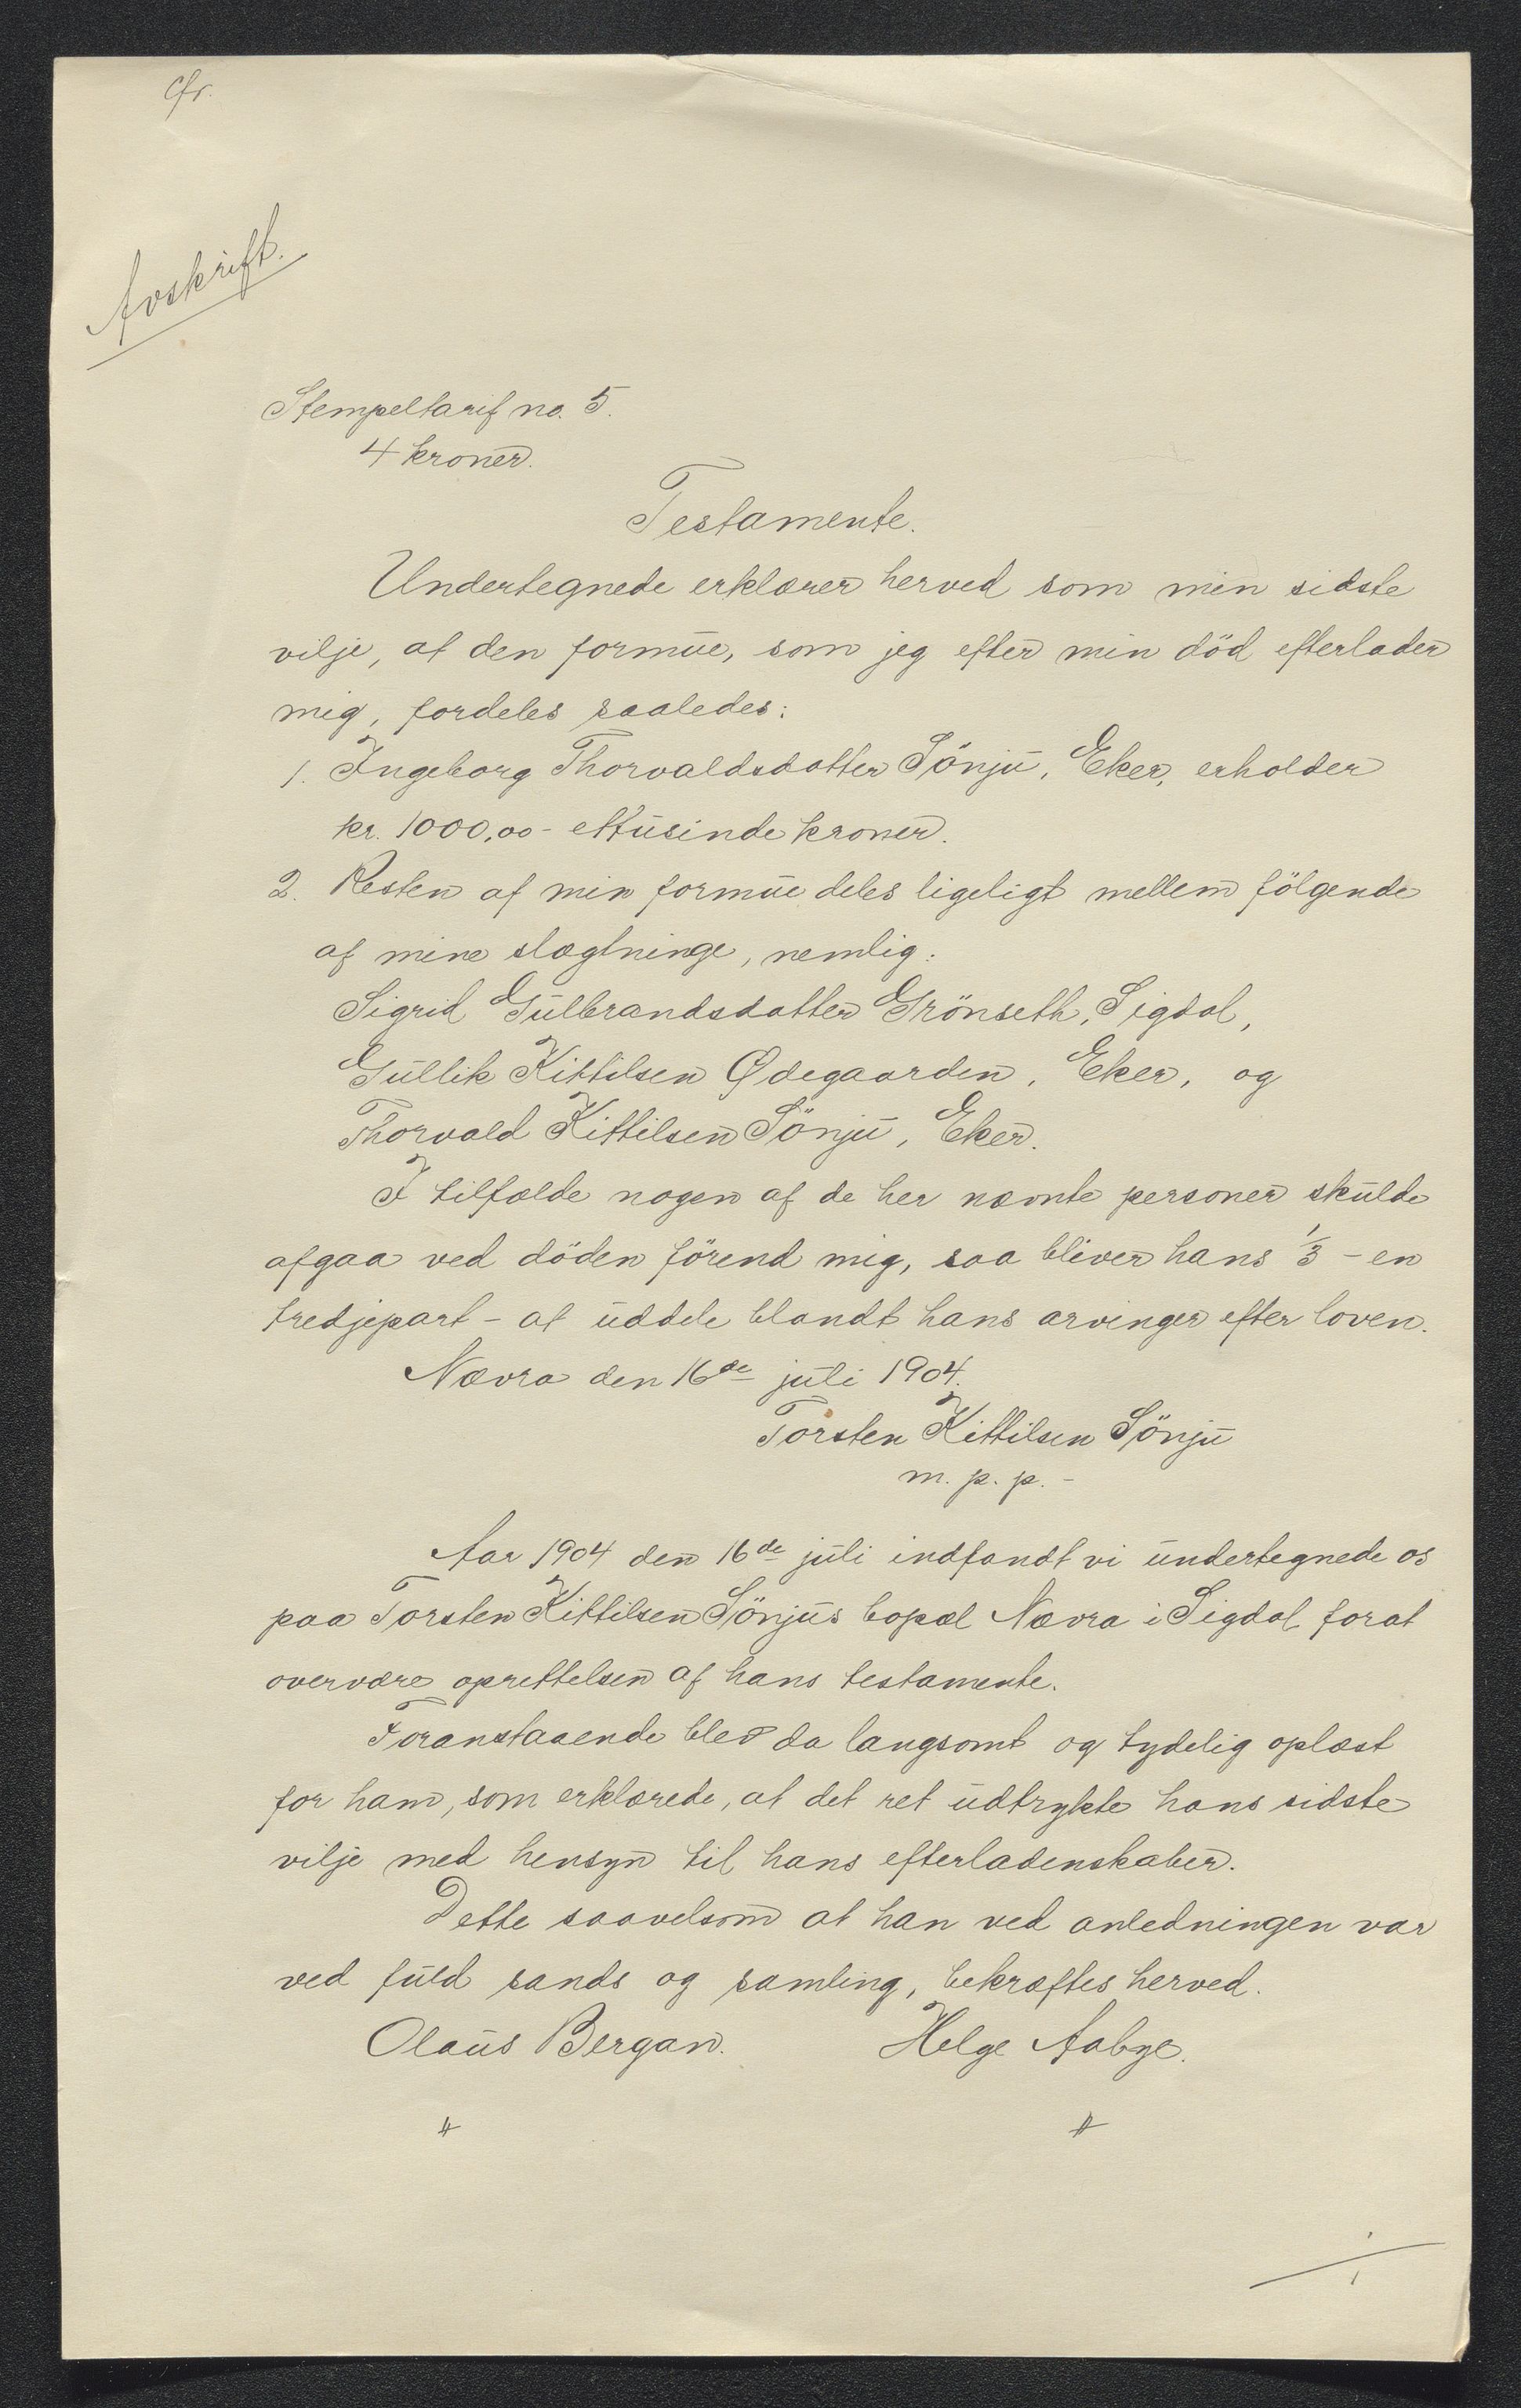 Cfr.
Avskrift.
Stempeltarif no. 5.
4 kroner.
Testamente.
Undertegnede erklærer herved som min sidste
vilje, at den formue, som jeg efter min död efterlader
mig, fordeles saaledes:
1. Ingeborg Thorvaldsdatter Sönju, Eker, erholder
kr. 1000,00 - ettusinde kroner.
2. Resten af min formue deles ligeligt mellem fölgende
af mine slægtninge, nemlig:
Sigrid Gulbrandsdatter Grönseth, Sigdal,
Gullik Kittilsen Ødegaarden, Eker, og
Thorvald Kittilsen Sönju, Eker.
I tilfælde nogen af de her nævnte personer skulde
afgaa ved döden förend mig, saa bliver hans 1/3 - en
tredjepart - at uddele blandt hans arvinger efter loven.
Nævra den 16de juli 1904.
Torsten Kittilsen Sönju
m. p. p. -
Aar 1904 den 16de juli indfandt vi undertegnede os
paa Torsten Kittilsen Sönjus bopæl Nævra i Sigdal forat
overvære oprettelsen af hans testamente.
Foranstaaende blev da langsomt og tydelig oplæst
for ham, som erklærede, at det ret udtrykte hans sidste
vilje med hensyn til hans efterladenskaber.
Dette saavelsom at han ved anledningen var
ved fuld sands og samling, bekræftes herved.
Olaus Bergan. Helge Aabye.